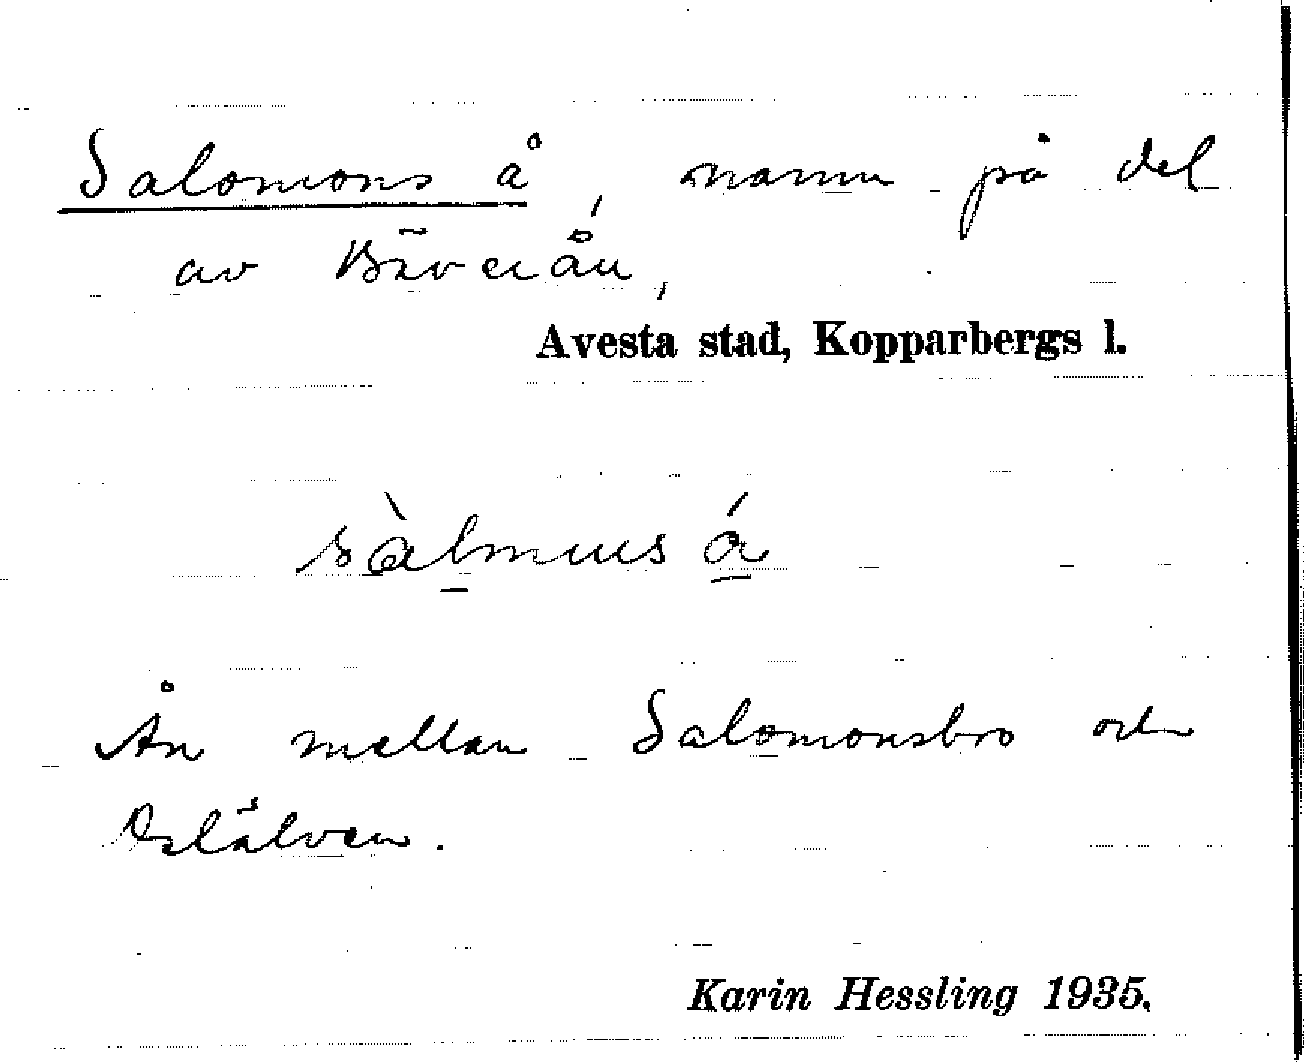 Salomons å, namn på del
av Bäverån,
Avesta stad, Kopparbergs l.
sàlmus ǻ
Ån mellan Salomonsbro och
Dalälven.
Karin Hessling 1935.